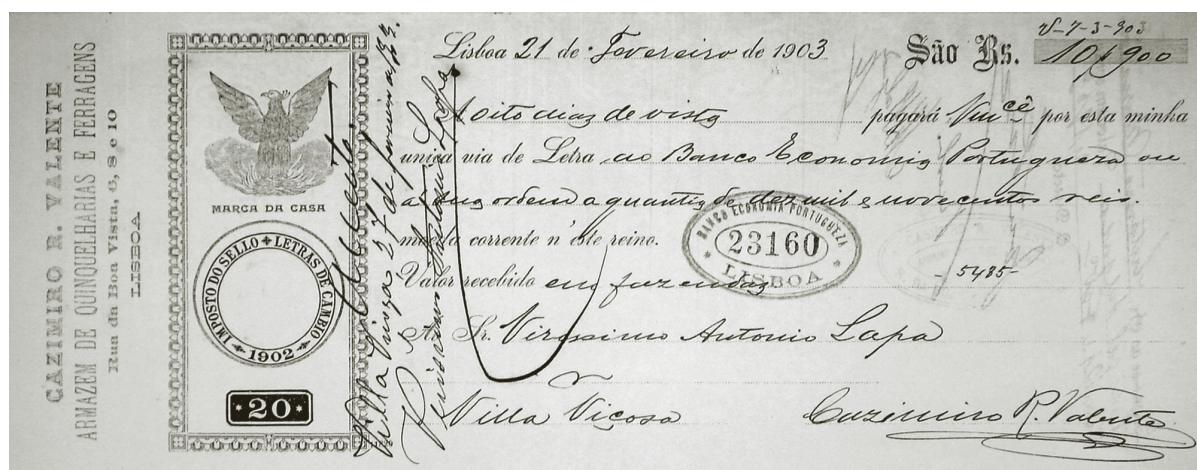 CAZIMIRO R. VALENTE
ARMAZEM DE QUINQUELHARIAS E FERRAGENS
Rua da Boa Vista, 6, 8 e 10
LISBOA
MARCA DA CASA
IMPOSTO DO SELLO LETRAS DE CAMBIO
1902
20
Acceite
Villa Viçosa 27 de fevereiro
Lisboa 21 de Fevereiro de 1903
São Rs. 10$900
A oito dias de vista pagará Vmcê por esta minha
unica via de Letra ao Banco Economia Portugueza ou
a sua ordem a quantia de dez mil e novecentos reis.
moeda corrente n'este reino.
BANCO ECONOMIA PORTUGUEZA
23160
LISBOA
Valor recebido em fazendas
- 5485 -
Ao Sr. Virissimo Antonio Lapa
Villa Viçosa
Cazimiro R. Valente